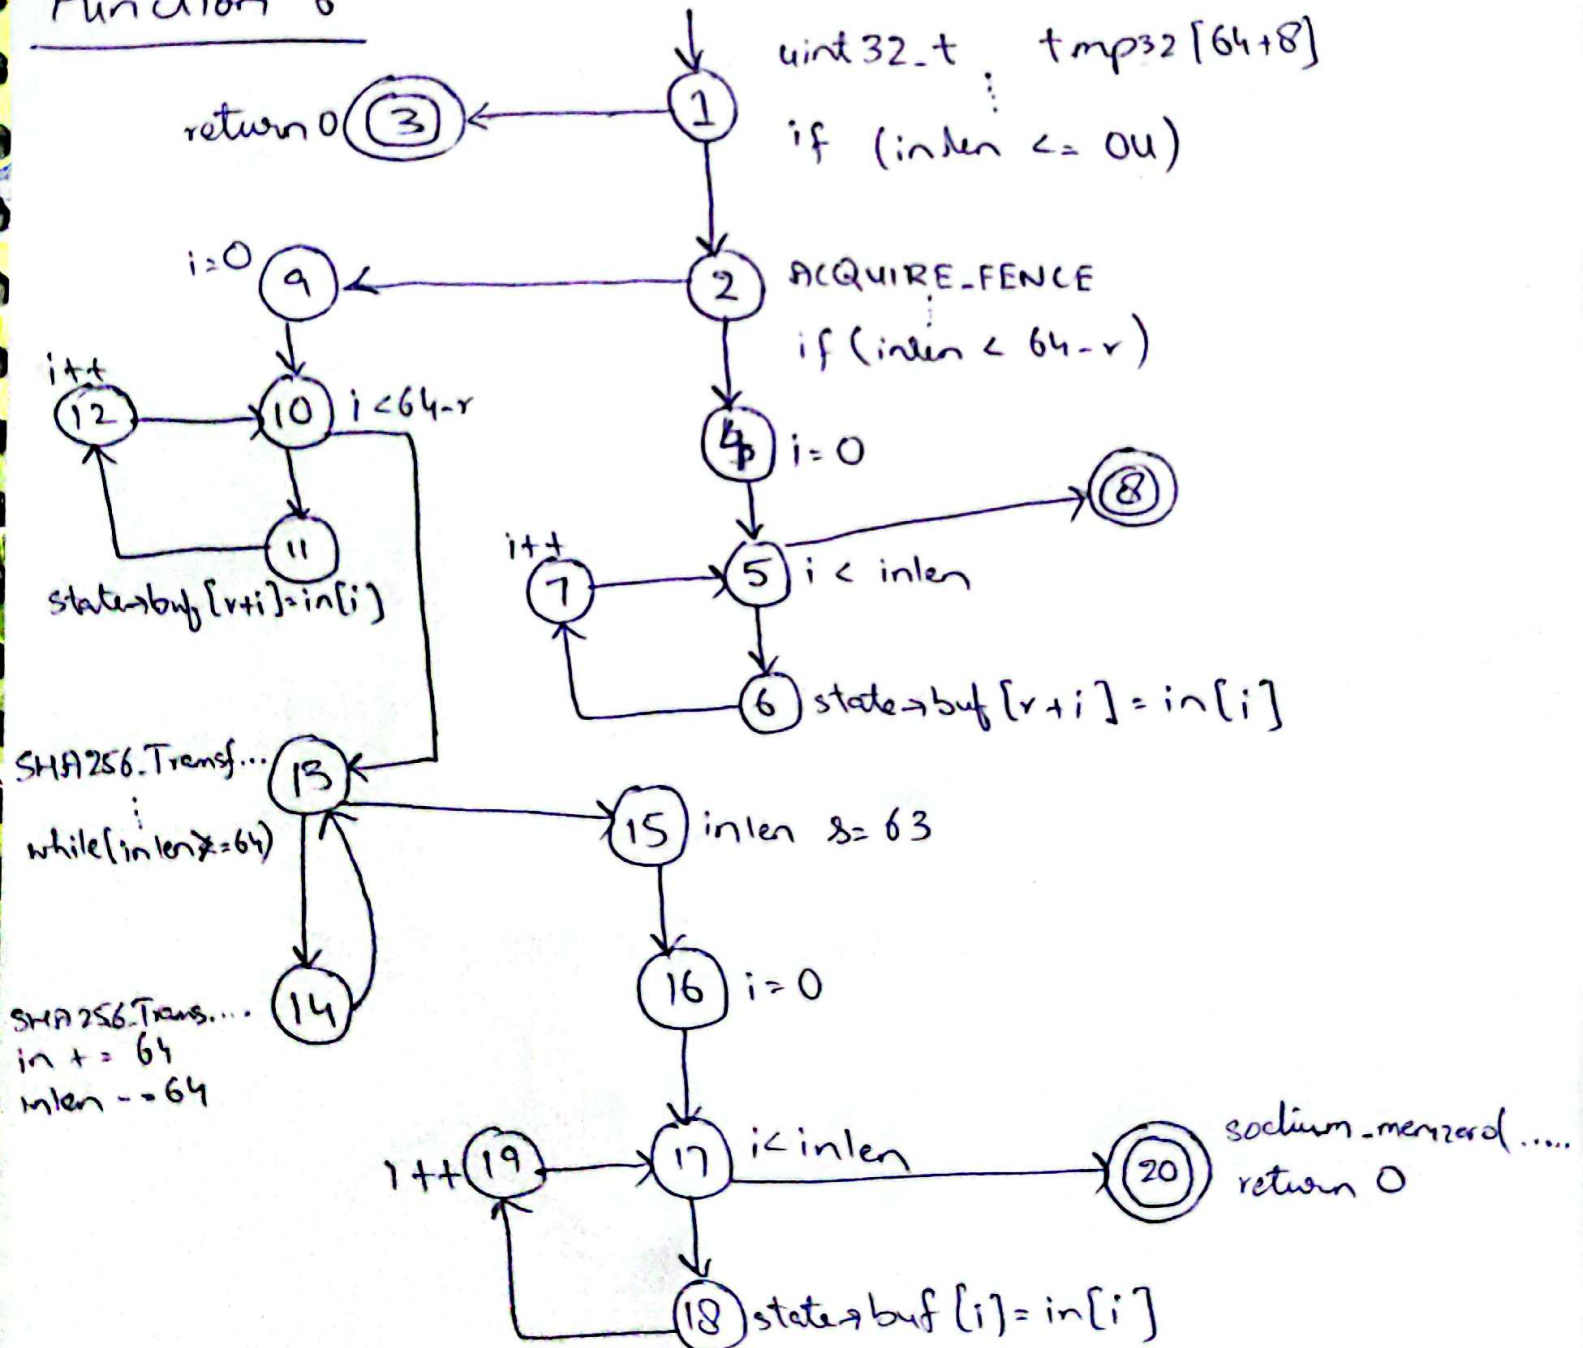 Function 6
uint32_t tmp32[64+8]
return 0 3
1
if (inlen <= 0U)
i=0
9
2
ACQUIRE_FENCE
if (inlen < 64-r)
i++
12
10
i<64-r
4
i=0
8
11
state→buf[r+i]=in[i]
i++
7
5
i < inlen
6
state→buf[r+i]=in[i]
SHA256_Transf...
13
while(inlen>=64)
15
inlen &= 63
14
SHA256_Trans....
in += 64
inlen -= 64
16
i=0
i++
19
17
i<inlen
20
sodium_memzero(.....
return 0
18
state→buf[i]=in[i]